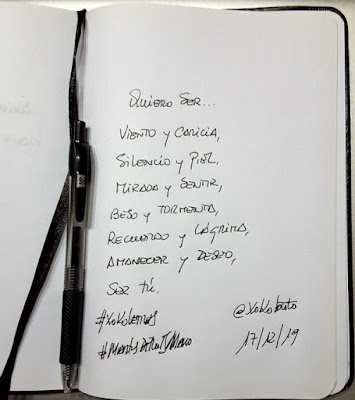 Quiero ser...
Viento y caricia,
Silencio y piel,
Mirada y sentir,
Beso y tormenta,
Recuerdo y lágrima,
Amanecer y deseo,
Ser tú.
#XoKoletras
17/12/19